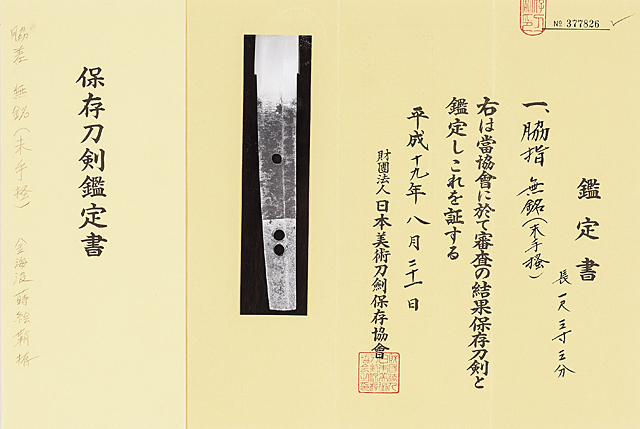 № 377826
鑑定書
一、脇指 無銘(末手掻)
長一尺三寸三分
右は當協會に於て審査の結果保存刀剣と
鑑定しこれを証する
平成十九年八月三十一日
財團法人日本美術刀劍保存協會
保存刀剣鑑定書
脇差 無銘(末手掻)
金海波蒔絵鞘脇指